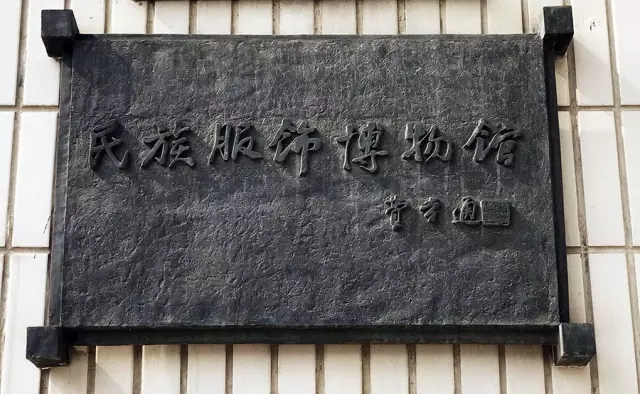 民族服饰博物馆
费孝通